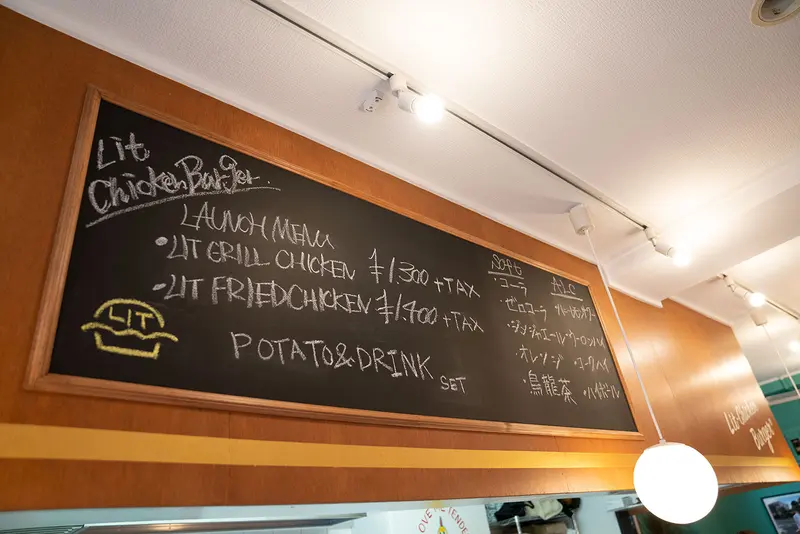 Lit
ChickenBurger
LAUNCH MENU
・LIT GRILL CHICKEN ¥1.300+TAX
・LIT FRIEDCHICKEN ¥1400+TAX
POTATO&DRINK SET
LIT
Soft
・コーラ
・ゼロコーラ
・ジンジャエール
・オレンジ
・烏龍茶
ALC
・ウーロンハイ
・コークハイ
・ハイボール
Lit-Chicken
Burger